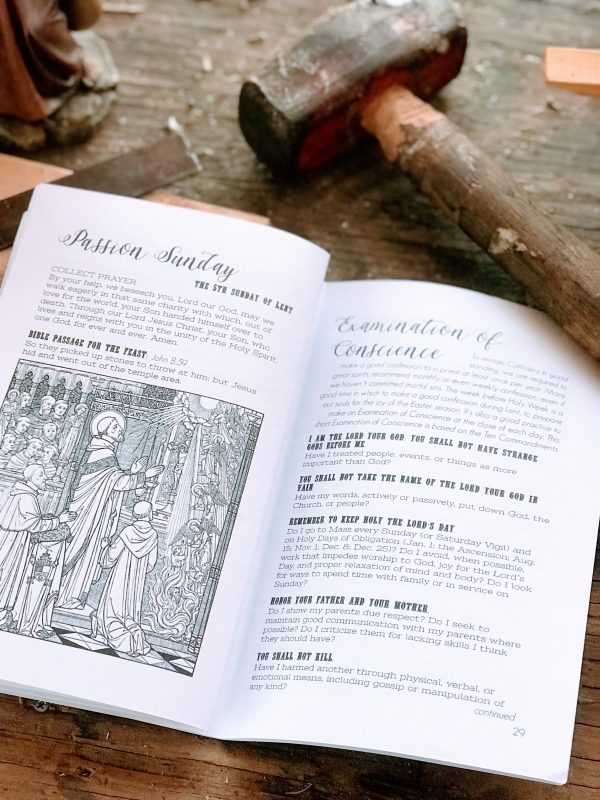 Passion Sunday
THE 5TH SUNDAY OF LENT
COLLECT PRAYER
By your help, we beseech you, Lord our God, may we
walk eagerly in that same charity with which, out of
love for the world, your Son handed himself over to
death. Through our Lord Jesus Christ, your Son, who
lives and reigns with you in the unity of the Holy Spirit,
one God, for ever and ever. Amen.
BIBLE PASSAGE FOR THE FEAST: John 8:59
So they picked up stones to throw at him; but Jesus
hid and went out of the temple area.
Examination of
Conscience
To remain Catholics in good
standing, we are required to
make a good confession to a priest at least once per year. Many
great saints recommend monthly or even weekly confession, even if
we haven't committed mortal sins. The week before Holy Week is a
good time in which to make a good confession during Lent, to prepare
our souls for the joy of the Easter season. It's also a good practice to
make an Examination of Conscience at the close of each day. This
short Examination of Conscience is based on the Ten Commandments.
I AM THE LORD YOUR GOD. YOU SHALL NOT HAVE STRANGE
GODS BEFORE ME
Have I treated people, events, or things as more
important than God?
YOU SHALL NOT TAKE THE NAME OF THE LORD YOUR GOD IN
VAIN.
Have my words, actively or passively, put down God, the
Church, or people?
REMEMBER TO KEEP HOLY THE LORD'S DAY.
Do I go to Mass every Sunday (or Saturday Vigil) and
on Holy Days of Obligation (Jan. 1; the Ascension; Aug.
15; Nov. 1; Dec. 8; Dec. 25)? Do I avoid, when possible,
work that impedes worship to God, joy for the Lord's
Day, and proper relaxation of mind and body? Do I look
for ways to spend time with family or in service on
Sunday?
HONOR YOUR FATHER AND YOUR MOTHER.
Do I show my parents due respect? Do I seek to
maintain good communication with my parents where
possible? Do I criticize them for lacking skills I think
they should have?
YOU SHALL NOT KILL
Have I harmed another through physical, verbal, or
emotional means, including gossip or manipulation of
any kind?
continued
29